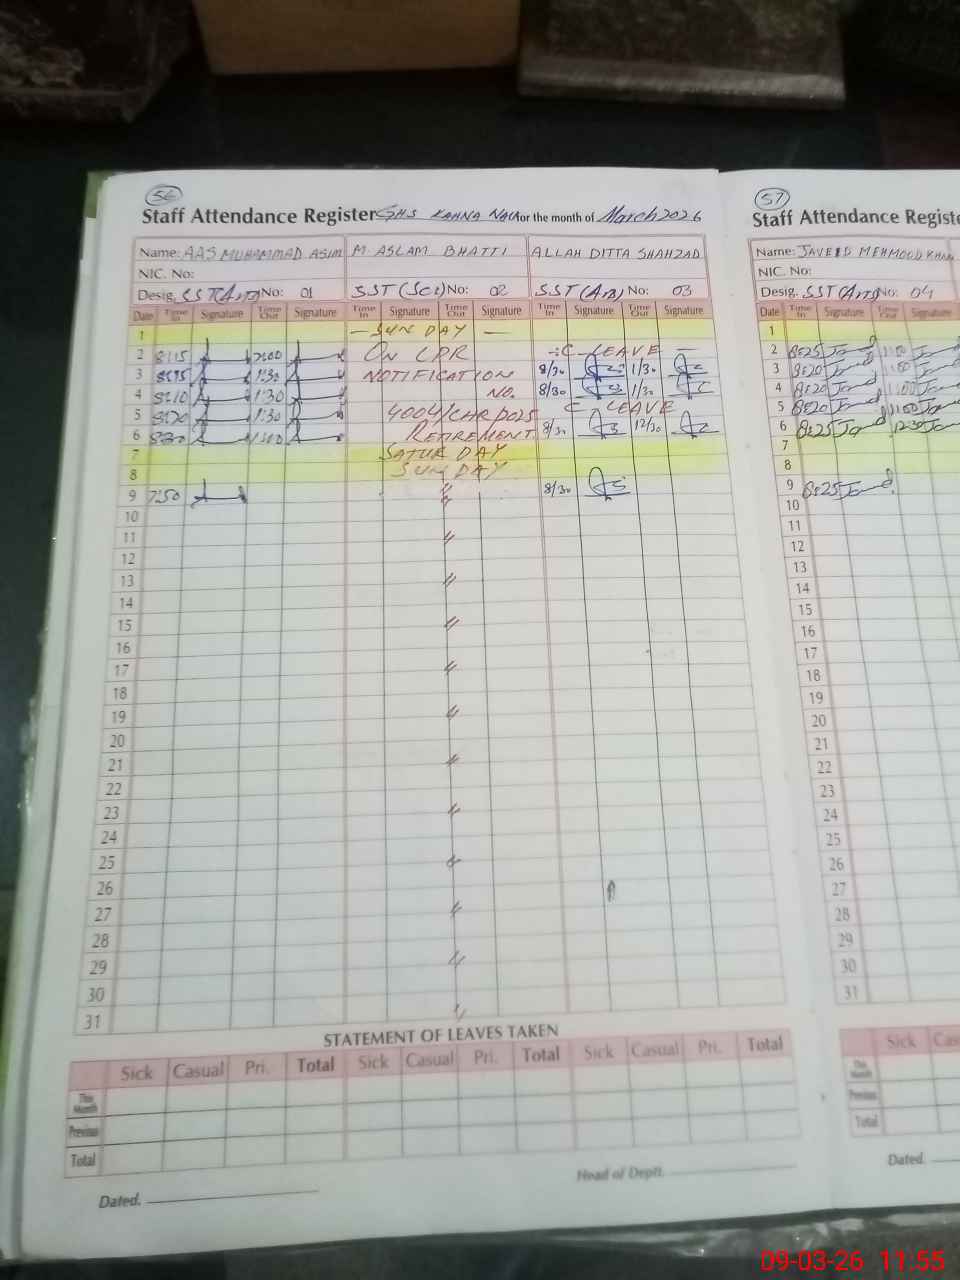 56
Staff Attendance Register GHS KAHNA NAU for the month of March 2026
Name: AAS MUHAMMAD ASIM M. ASLAM BHATTI ALLAH DITTA SHAHZAD
NIC. No:
Desig. SST(Arts) No: 01 SST (Sci) No: 02 SST (Arts) No: 03
Date Time In Signature Time Out Signature Time In Signature Time Out Signature Time In Signature Time Out Signature
1 — SUN DAY —
2 8:15 2:00 ON LPR C-LEAVE —
3 8:15 1:30 NOTIFICATION 8/30 1/30
4 8:10 1:30 NO. 8/30 1/30
5 8:20 1:30 C LEAVE
6 RETIREMENT 8/30 12/30
7 SATUR DAY
8 SUN DAY
9 7:50 8/30
10
11
12
13
14
15
16
17
18
19
20
21
22
23
24
25
26
27
28
29
30
31
STATEMENT OF LEAVES TAKEN
Sick Casual Pri. Total Sick Casual Pri. Total Sick Casual Pri. Total
This Month
Previous
Total
Dated. Head of Deptt.
57
Staff Attendance Registe
Name: JAVEED MEHMOOD KHAN
NIC. No:
Desig. SST (Arts) No: 04
Date Time In Signature Time Out Signature
1
2 8:25
3 8:20
4 8:20
5 8:20
6 8:25 12:30
7
8
9 8:25
10
11
12
13
14
15
16
17
18
19
20
21
22
23
24
25
26
27
28
29
30
31
Sick Cas
This Month
Previous
Total
Dated.
09-03-26 11:55